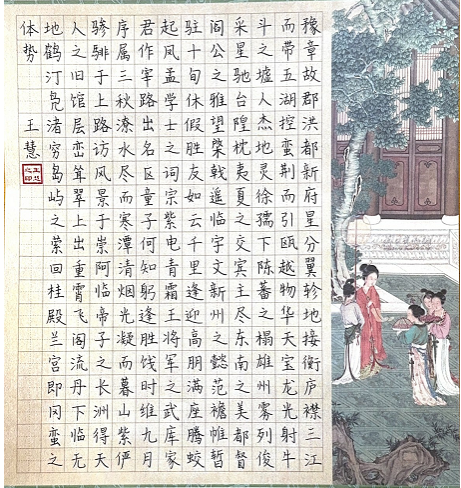 豫章故郡洪都新府星分翼轸地接衡庐襟三江
而带五湖控蛮荆而引瓯越物华天宝龙光射牛
斗之墟人杰地灵徐孺下陈蕃之榻雄州雾列俊
采星驰台隍枕夷夏之交宾主尽东南之美都督
阎公之雅望棨戟遥临宇文新州之懿范襜帷暂
驻十旬休假胜友如云千里逢迎高朋满座腾蛟
起凤孟学士之词宗紫电青霜王将军之武库家
君作宰路出名区童子何知躬逢胜饯时维九月
序属三秋潦水尽而寒潭清烟光凝而暮山紫俨
骖騑于上路访风景于崇阿临帝子之长洲得天
人之旧馆层峦耸翠上出重霄飞阁流丹下临无
地鹤汀凫渚穷岛屿之萦回桂殿兰宫即冈峦之
体势 王慧